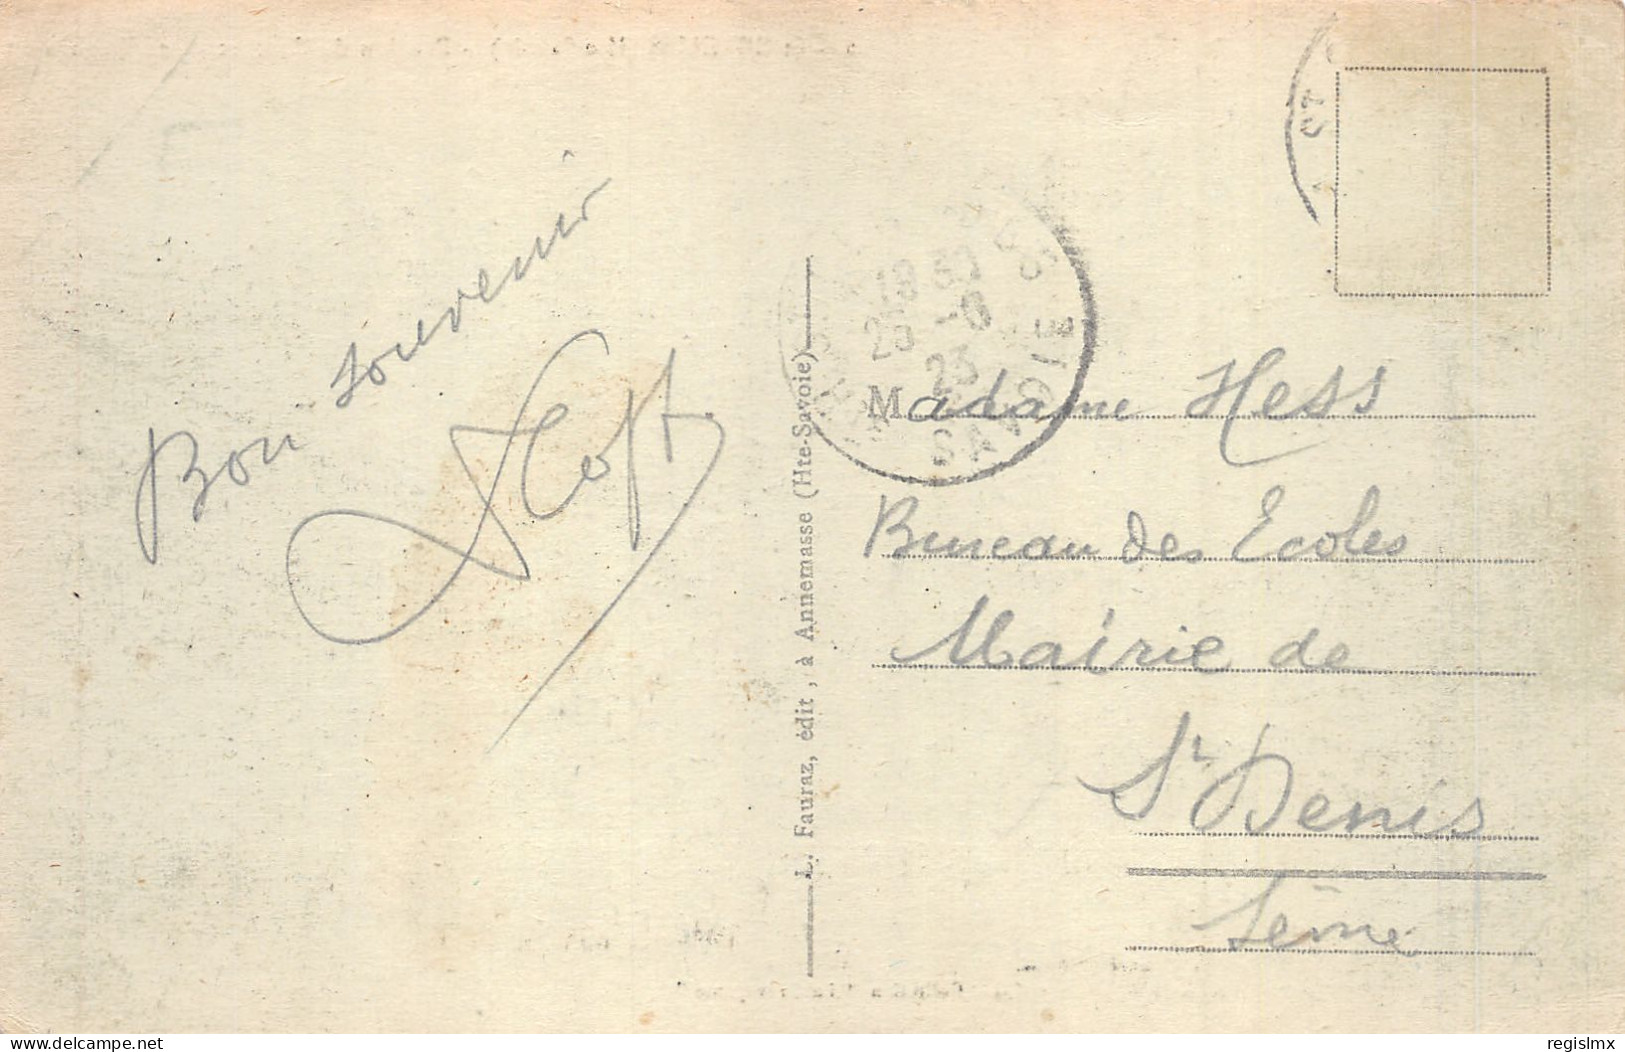 Bon souvenir
L. Fauraz, édit, à Annemasse (Hte-Savoie)
18 30
25 -8
23
SAVOIE
ST
Madame Hess
Bureau des Ecoles
Mairie de
St Denis
Seine
delcampe.net
regislmx